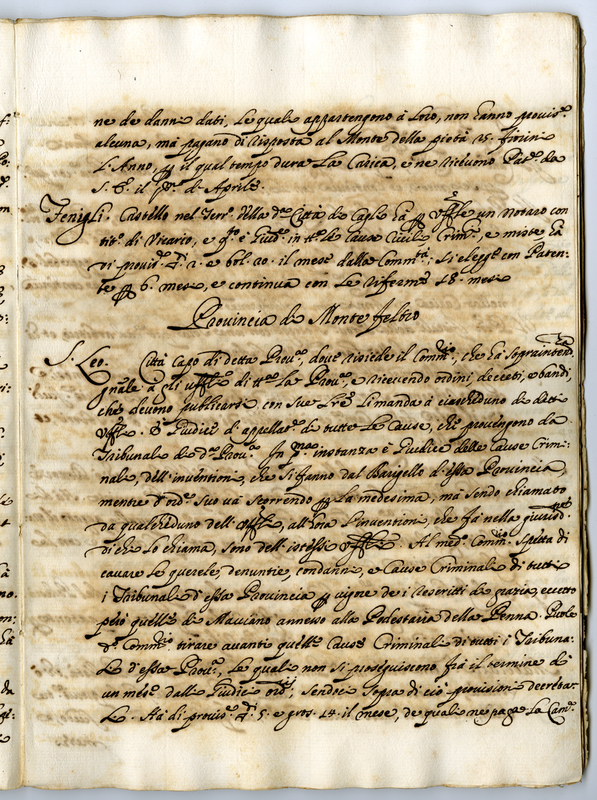 ne de danni dati, le quali appartengono à loro, non hanno provis.e
alcuna, mà pagano di risposta al Monte della pietà 25. fiorini
l'Anno, il qual tempo dura la carica, e ne ricevono Pat.e da
S. A. il p.o d'Aprile.
Fenigli. Castello nel Terr.o della d.a Città di Cagli hà un Notaro con
tit.o di Vicario, e q.o è Giud.e in tt.e le cause Civili, Crim.i, e miste hà
di provis.e 2. e bol. 20. il mese dalla Comm.tà, si elegge con Paten-
te 6. mesi, e continua con le riferme 18. mesi
Provincia di Monte feltro
S. Leo. Città capo di detta Prov.a, dove risiede il Comm.rio, che hà sopraintend.za
gnãle à gli uffli di tt.a la Prov.a, e ricevendo ordini, decreti, e bandi,
che devono publicarsi con sue lre li manda à ciascheduno di detti
uffli. È Giudice d'appellat.e di tutte le Cause, che provengono da
Tribunali di d.a Prov.a In p.ma instanza è Giudice delle Cause Crimi-
nali, dell'inventioni, che si fanno dal Barigello d'essa Provincia,
mentre d'ord.e suo và scorrendo la medesima, mà sendo chiamato
da qualcheduno dell' uffli, all'hora l'inventioni, che fà nella giurisd.ne
di chi lo chiama, sono dell'istessi uffli. Al med.o Comm.rio spetta di
cavare le querele, denuntie, condanne, e Cause Criminali di tutti
i Tribunali d'essa Provincia vigore de i rescritti di grazia, eccetto
però quelle di Maciano annesso alla Podestaria della Penna. Puole
d.o Comm.rio tirare avanti quelle Cause Criminali di tutti i Tribuna-
li d'essa Prov.a, le quali non si proseguiscono frà il termine di
un mese dalli Giudici ord.rij, sendoci sopra di ciò provisioni decreta-
li. Hà di provis.e 5. e gros. 14. il mese, de quali ne paga la Cam.a